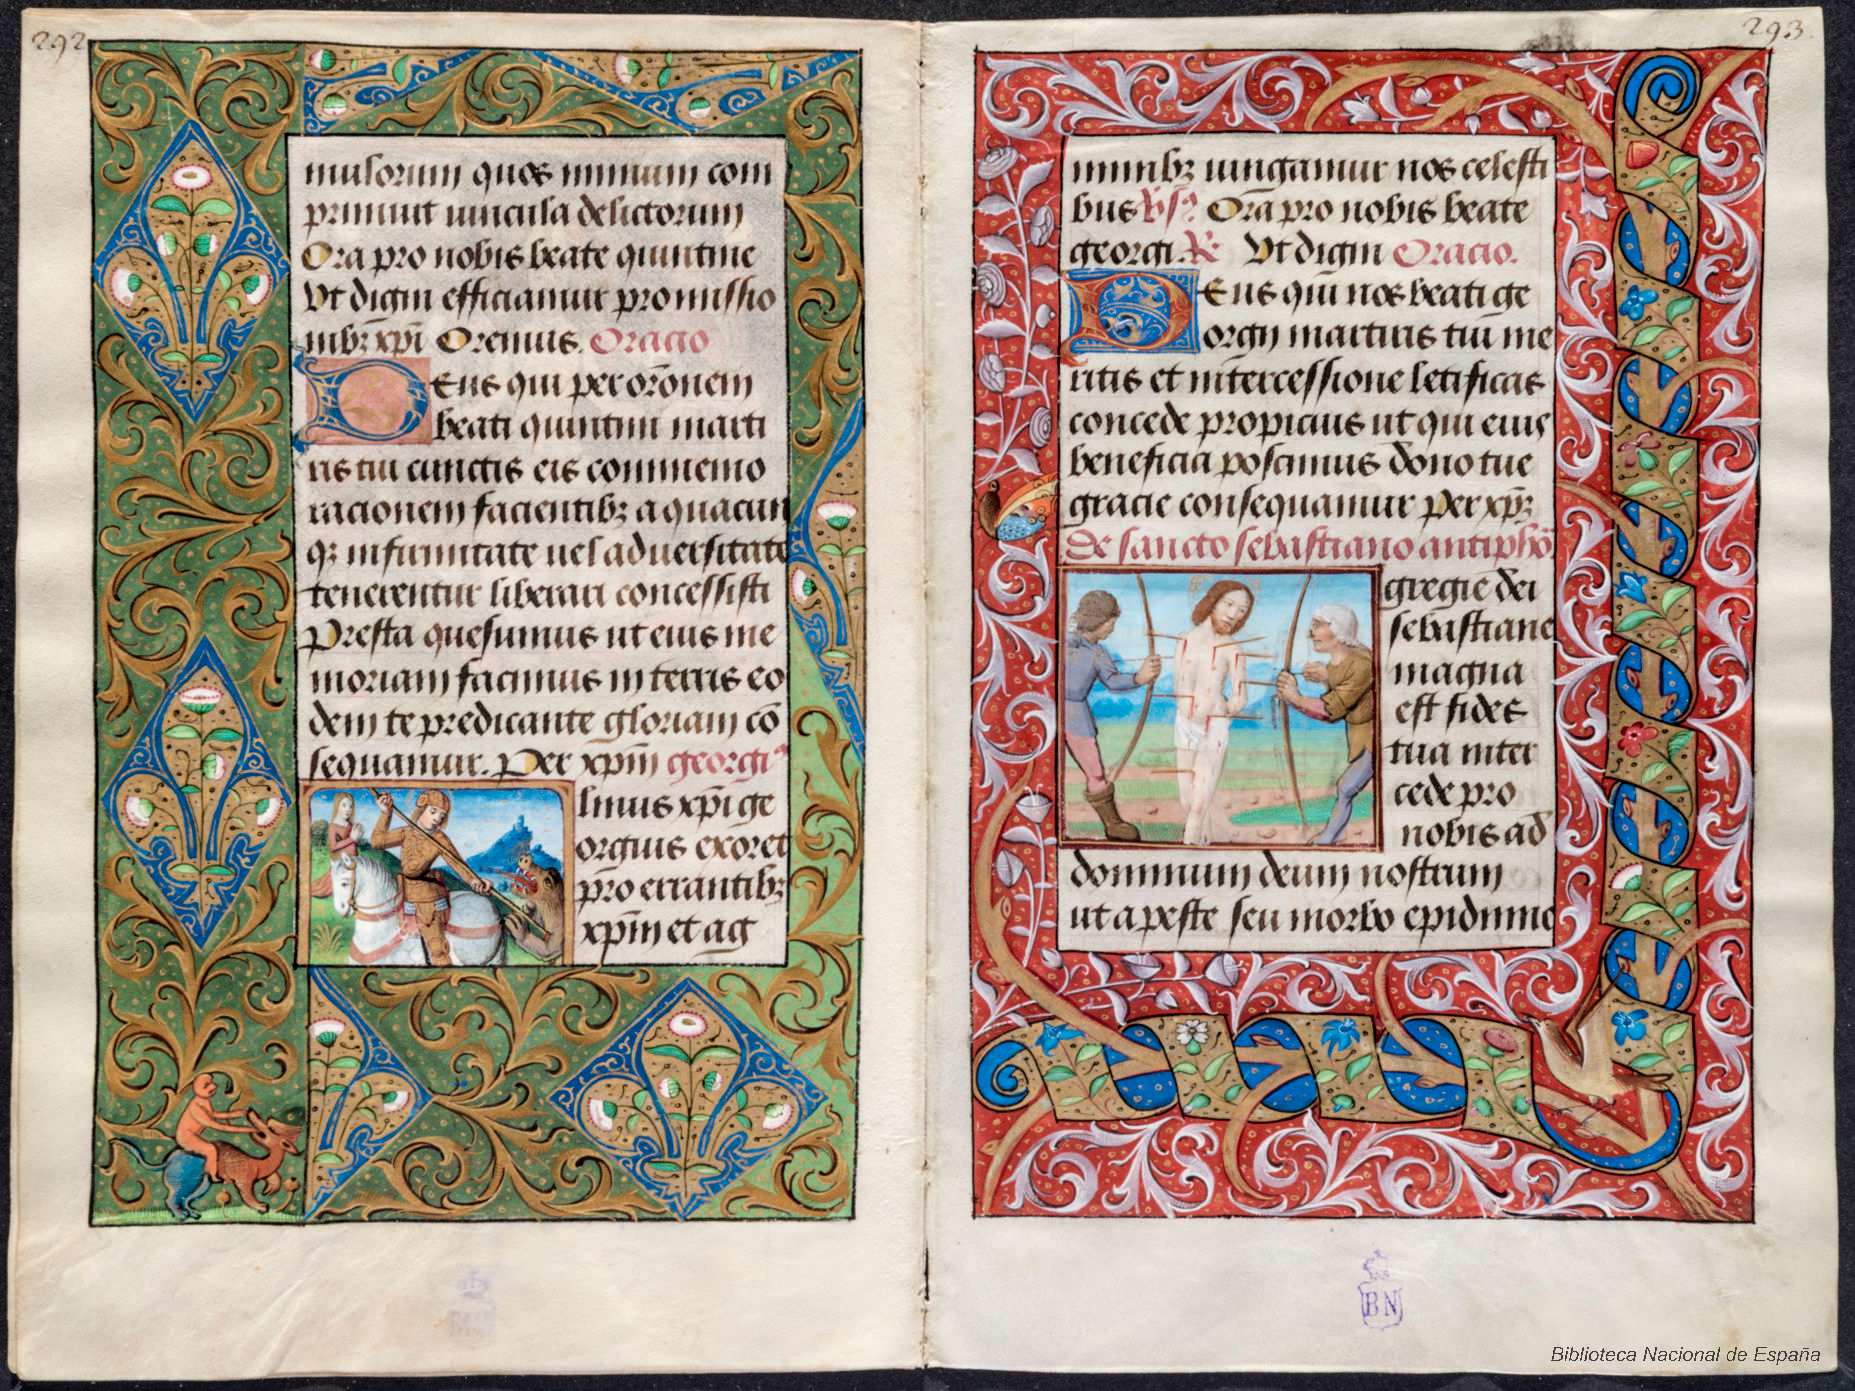 292
mulorum quos nimium com
primiut uincula delictorum
Ora pro nobis beate quintine
Vt digni efficiamur promissio
nibꝫ xp̄i Oremus. Oracio
Deus qui per or̄onem
beati quintini marti
ris tui cunctis eis commemo
racionem facientibꝫ a quacun
qꝫ infirmitate uel aduersitate
tenerentur liberari concessisti
Presta quesumus ut eius me
moriam facimus in terris eo
dem te predicante gloriam cō
sequamur. Per xp̄m georgiꝰ
lmus xp̄i ge
orgius exoret
pro errantibꝫ
xp̄m et ag
293
minibꝫ iungamur nos celesti
bus Orā pro nobis beate
georgi. ℟ Vt digni Oracio.
Deus qui nos beati ge
orgij martiris tui me
ritis et intercessione letificas
concede propicius ut qui eius
beneficia poscimus dono tue
gracie consequamur Per xp̄ꝫ
de sancto sebastiano antiphō
gregie dei
sebastiane
magna
est fides
tua inter
cede pro
nobis ad
dominum deum nostrum
ut a peste seu morbo epidimie
BN
Biblioteca Nacional de España